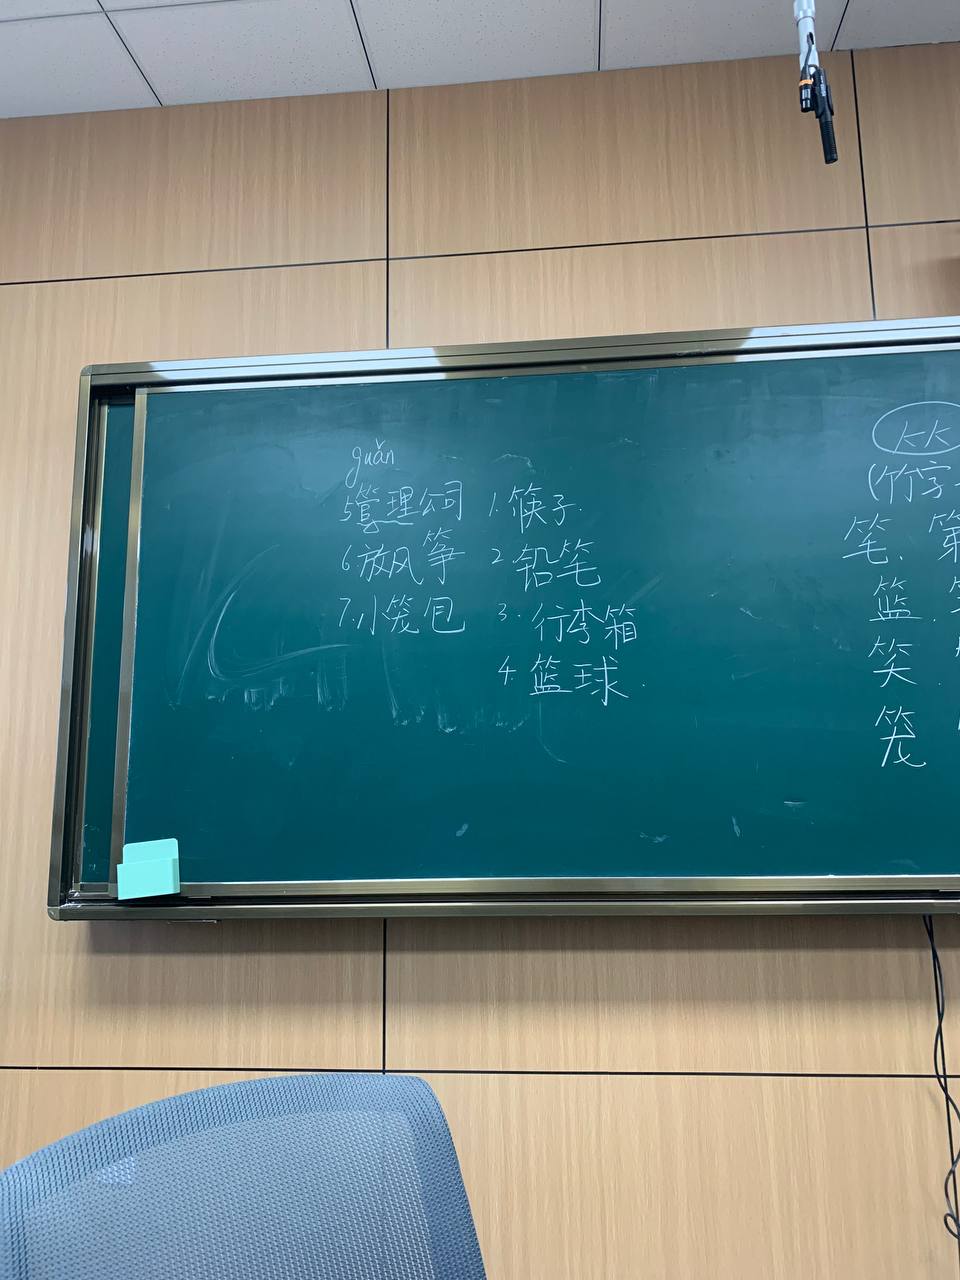 guǎn
5管理公司
6放风筝
7.小笼包
1.筷子.
2铅笔
3.行李箱
4.篮球.
⺮
(竹字
笔、第
篮.
笑.
笼